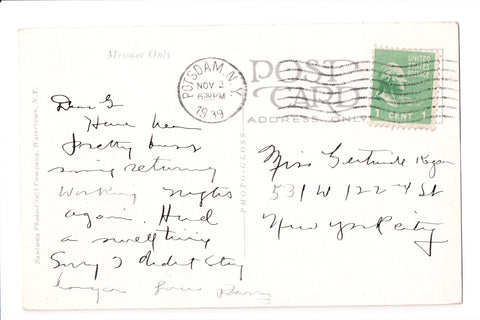 Message Only
POST
CARD
ADDRESS ONLY
POTSDAM, N.Y.
NOV 2
630PM
1939
UNITED
STATES
POSTAGE
1 CENT 1
Santway Photo-Craft Company, Watertown, N.Y.
PHOTO-GLOSS
Dear G
Have been
pretty busy
since returning
working nights
again. Had
a swell time
Sorry I didnt stay
longer Love
Miss Gertrude
531 W 122nd St
New York City